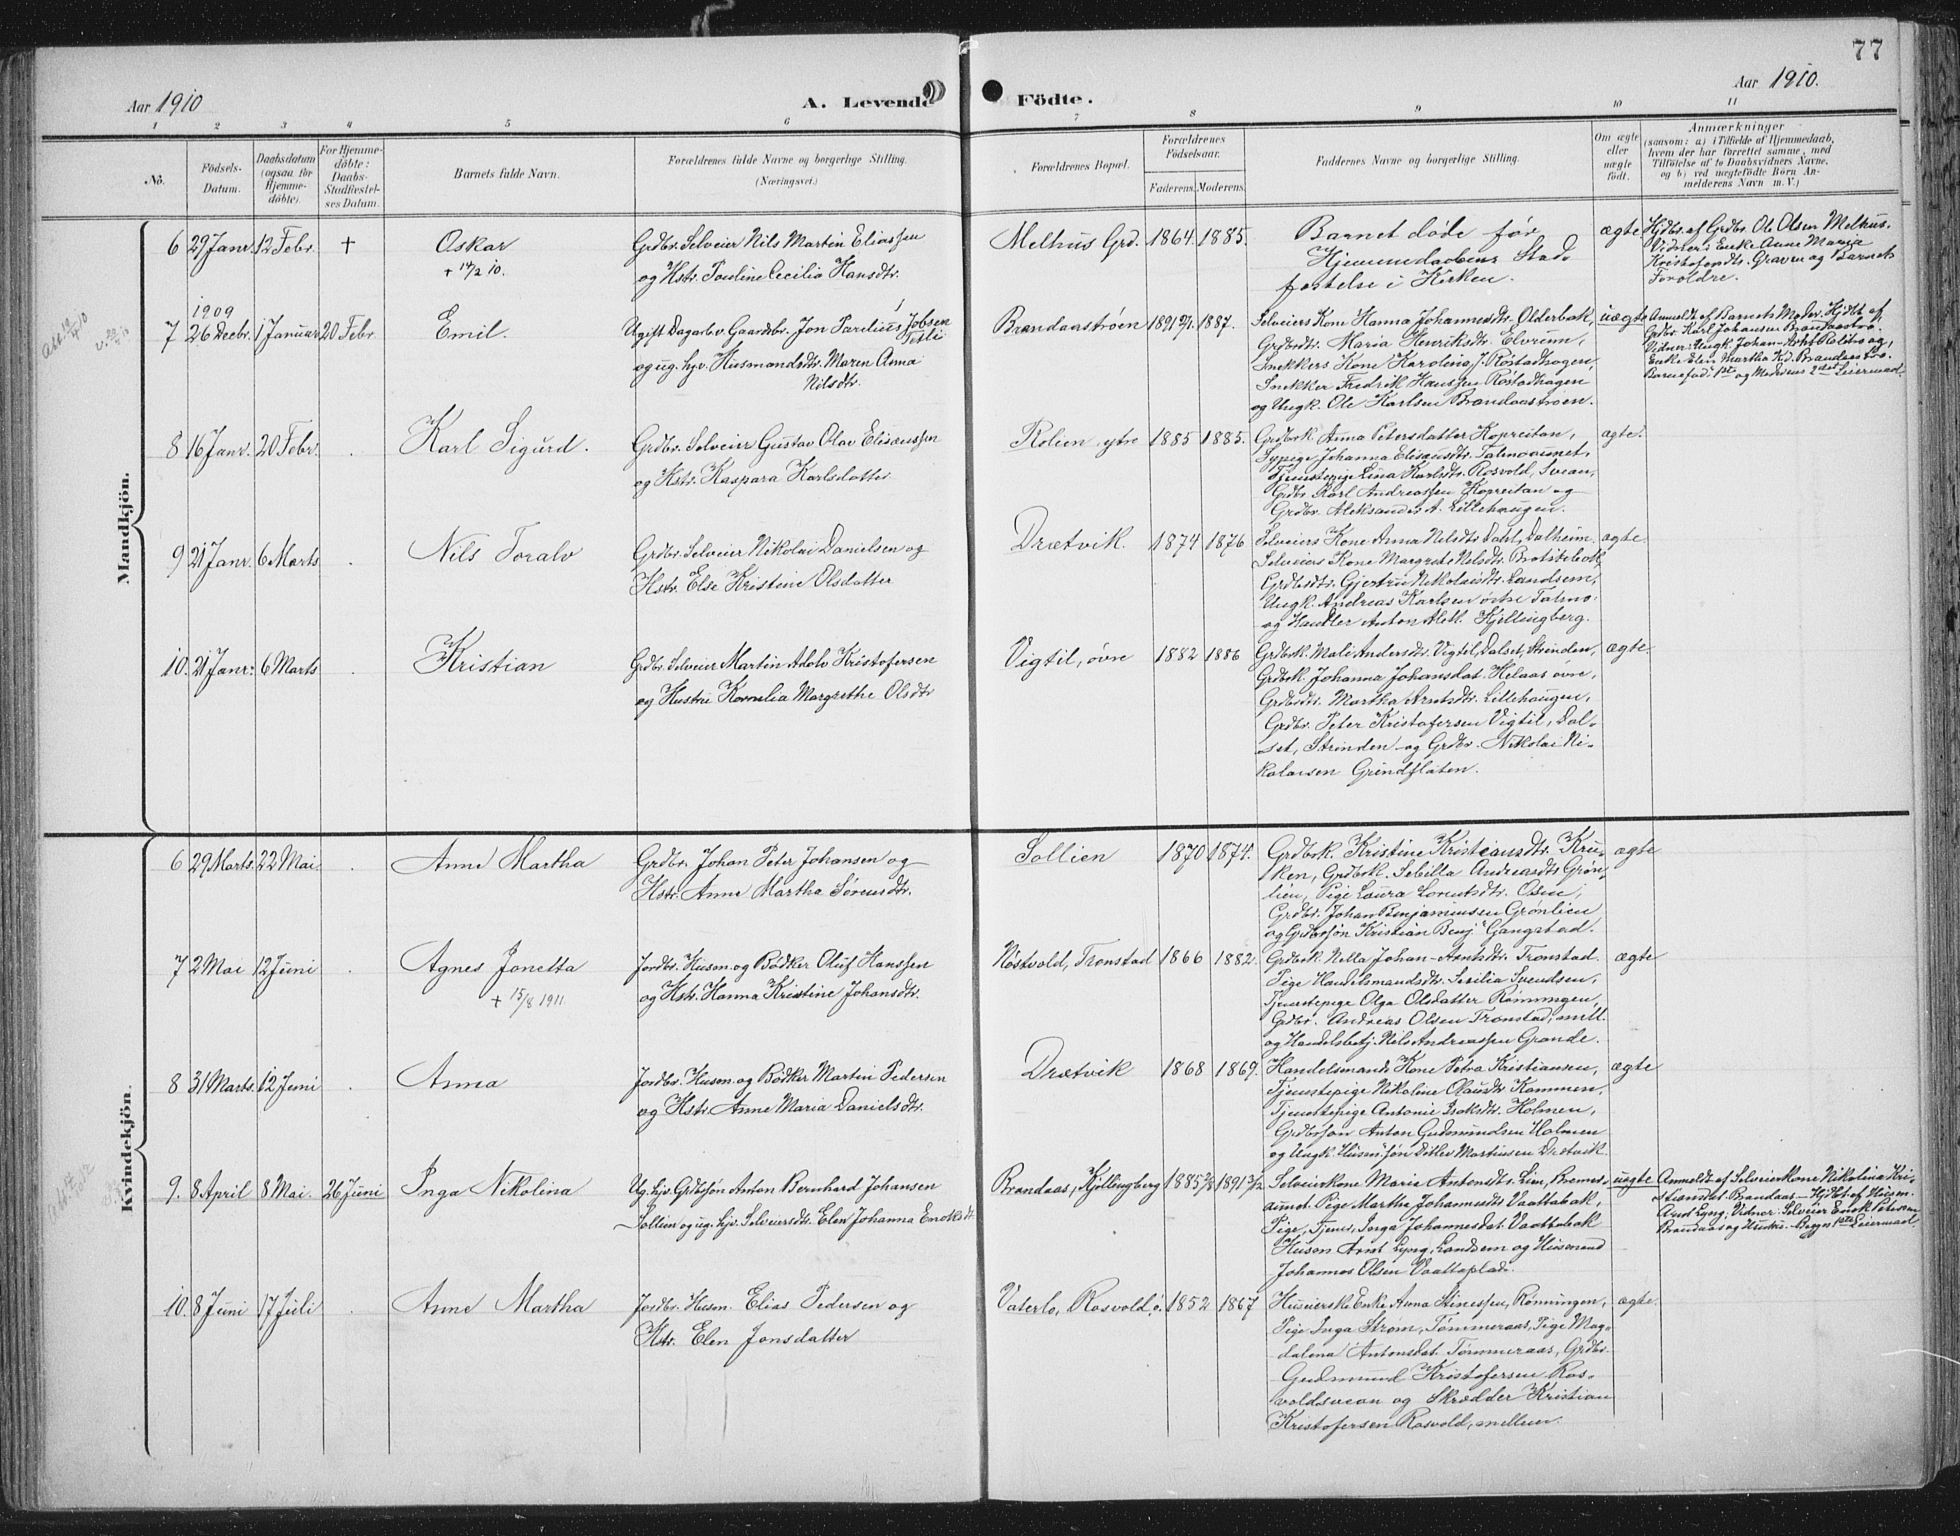 77
Aar 1910
A. Levende
Födte.
Aar 1910.
1 2 3 4 5 6 7 8 9 10 11
No.
Födsels-
Datum.
Daabsdatum
(ogsaa for
Hjemme-
döbte).
For Hjemme-
döbte:
Daabs-
Stadfæstel-
ses Datum.
Barnets fulde Navn.
Forældrenes fulde Navne og borgerlige Stilling.
(Næringsvei.)
Forældrenes Bopæl.
Forældrenes
Födselsaar.
Faderens. Moderens.
Faddernes Navne og borgerlige Stilling.
Om ægte
eller
uægte
födt.
Anmærkninger
(saasom: a) i Tilfælde af Hjemmedaab,
hvem der har forrettet samme, med
Tilföielse af to Daabsvidners Navne,
og b) ved uægtefödte Börn An-
melderens Navn m. V.)
Mandkjön.
6 29 Janr. 12 Febr. + Oskar
+ 14/2 10.
Grdbr. Selveier Nils Martin Eliassen
og Hstr. Pauline Cecilia Hansdtr.
Melhus Grd. 1864. 1885.
Barnet døde før
Hjemmedaabens Stad-
fæstelse i Kirken.
ægte
Hjdbt. af Grdbr. Ole Olsen Melhus.
Vidner: Enke Anne Maria
Kristofendtr. Graven og Barnets
Foroldre.
1909
7 26 Decbr. 1 Januar 20 Febr. Emil.
Ugift Dagarb. v. Gaardsbr. Jon Parelius Jobsen
og ug. hjv. Husmandsdtr. Maren Anna
Nilsdtr.
Brandaastrøen 1887.
Selveiers Kone Hanna Johannesdtr. Olderbak,
Grdbrdtr. Maria Henriksdtr. Elvrum,
Snekkers Kone Karolina J. Røstadhagen,
Snekker Fredrik Hanssen Røstadhagen
og Ungk. Ole Karlsen Brandaastrøen.
uægte
Anmeldt af Barnets Moder. Hjdbt. af
Grdbr. Karl Johansen Brandaastrø.
Vidner: Ungk. Johan
Enke Elen Martha Brandaastrø.
Barnefad. 1ste og Moderens 2det Leiermaal.
8 16 Janr. 20 Febr. . Karl Sigurd.
Grdbr. Selveier Gustav Olav Elisæussen
og Hstr. Kaspara Karlsdatter
Rolien ytre 1885 1885.
Grdbrk. Anna Petersdatter Kopreitan,
Sypige Johanna Elisæusdtr. Talmoaunet,
Tjenstepige Lina Karlsdtr. Rosvold, Svean,
Grdbr. Karl Andreassen Kopreitan og
Grdbr. Aleksander A. Lillehaugen.
ægte.
9 21 Janr. 6 Marts . Nils Toralv
Grdbr. Selveier Nikolai Danielsen og
Hstr. Else Kristine Olsdatter
Drætvik. 1874 1876
Selveiers Kone Anna Nilsdtr. Dahl, Dalheim.
Selveiers Kone Margrete Nilsdtr. Bratslibak,
Grdbrdtr. Gjertru Nikolaisdtr. Landsem,
Ungk. Andreas Karlsen østre Talmo
og Handler Anton Kjellingberg.
ægte
10. 21 Janr. 6 Marts . Kristian
Grdbr. Selveier Martin Adolv Kristofersen
og Hustru Kornelia Margrethe Olsdtr
Vigtil, øvre 1882 1886
Grdbrk. Mali Andersdtr. Vigtil, Dalset, Strinden,
Grdbrk. Johanna Johansdat. Helaas øvre,
Grdbrdtr. Martha Arntsdtr. Lillehaugen,
Grdbr. Peter Kristofersen Vigtil, Dal-
set, Strinden og Grdbr. Nikolai Ni-
kolaisen Grindflaten.
ægte
Kvindekjön.
6 29 Marts. 22 Mai . Anne Martha
Grdbr. Johan Peter Johansen og
Hstr. Anne Martha Sørensdtr.
Sollien 1870 1874.
Grdbrk. Kristine Kristiansdtr. Kru-
ken, Grdbrk. Sebilla Andreasdtr Grøn-
lien, Pige Laura Lorentsdtr. Osen,
Grdbr. Johan Benjaminsen Grønlien
og Grdbrsøn Kristian Benj. Gangstad.
ægte
7 2 Mai 12 Juni . Agnes Jonetta
+ 15/8 1911
Jordbr. Husm. og Bødker Oluf Hanssen
og Hstr. Hanna Kristine Johansdtr.
Nøstvold, Tronstad 1866 1882.
Grdbrk. Nella Johan-Arntsdtr. Tronstad.
Pige Handelsmandsdtr. Sesilia Svendsen,
Tjenstepige Olga Olsdatter Rømmigen,
Grdbr. Andreas Olsen Tronstad, mell.
og Handelsbetj. Nils Andreassen Grande.
ægte
8 31 Marts. 12 Juni . Anna
Jordbr. Husm. og Bødker Martin Pedersen
og Hstr. Anne Maria Danielsdtr.
Drætvik 1868 1869.
Handelsmands Kone Petra Kristiansen,
Tjenstepige Nikoline Olausdtr Kammen,
Tjenstepige Antonie Isaksdtr. Holmen,
Grdbrsøn Anton Gudmundsen Holmen
og Ungk. Husm. søn Ditlev Martinsen Drætvik.
ægte
9. 8 April 8 Mai. 26 Juni Inga Nikolina
Ug. hjv. Grdbrsøn Anton Bernhard Johansen
Sollien og ug. hjv. Selveiersdtr. Elen Johanna Enoksdtr.
Brandaas, Kjellingberg
Selveierkone Marie Antonsdtr. Lien, Bremes-
aunet. Pige Martha Johannesdtr Vaattabak,
Pige, Tjener, Inga Johannesdat. Vaattabak
Husm. Arnt Lyng, Landsem og Husmand
Johannes Olsen Vaattaplads.
uægte
Anmeldt af Selveierkone Nikolina Kri-
stiansdat. Brandaas. Hjdbt. af Husm.
Arnt Lyng, Vidner: Selveier Enok Petersen
Brandaas og Hustru. Begges 1ste Leiermaal
10. 8 Juni 17 Juli . Anne Martha
Jordbr. Husm. Elias Pedersen og
Hstr. Elen Jonsdatter
Vaterlo, Rosvold, ø. 1852 1867
Huseierske Enke Anna Stinessen, Rønningen,
Pige Inga Strøm, Tømmeraas, Pige Mag-
dalena Antonsdat. Tømmeraas, Grdbr.
Gudmund Kristofersen Ros-
voldsvean og Skrædder Kristian
Kristofersen Rosvold, mellem.
ægte.